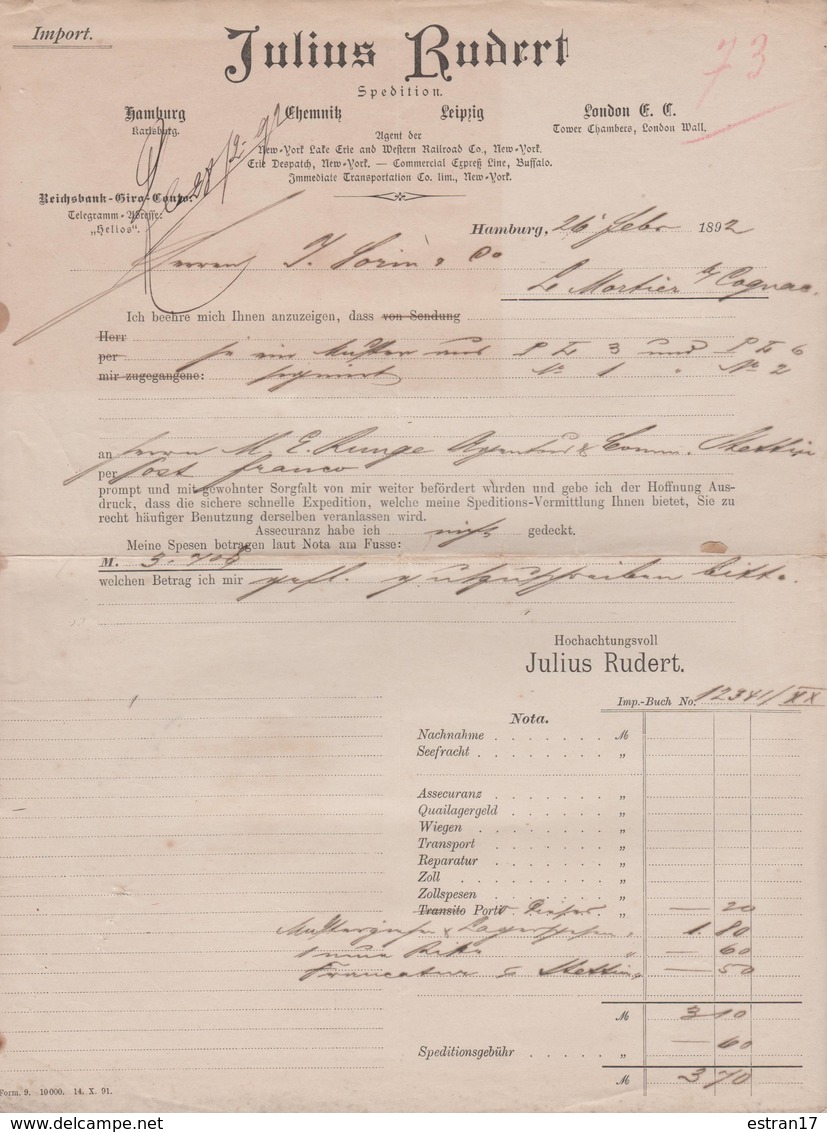 Import.
Julius Rudert
73
Spedition.
Hamburg Chemnitz Leipzig London E. C.
Karlsburg. Tower Chambers, London Wall.
Agent der
New-York Lake Erie and Western Railroad Co., New-York.
Erie Despatch, New-York. — Commercial Expreß Line, Buffalo.
Immediate Transportation Co. lim., New-York.
Reichsbank-Giro-Conto.
Telegramm-Adresse:
„Helios“.
28/2 92
Hamburg, 26 Febr 1892
Herren J. Sorin & Co
Le Mortier b/ Cognac.
Ich beehre mich Ihnen anzuzeigen, dass von Sendung
Herr
per je ein Muster aus 3 und 6
mir zugegangene: signirt No 1 " No 2
an Herrn M. E. Runge Agentur & Comm. Stettin
per Post franco
prompt und mit gewohnter Sorgfalt von mir weiter befördert wurden und gebe ich der Hoffnung Aus-
druck, dass die sichere schnelle Expedition, welche meine Speditions-Vermittlung Ihnen bietet, Sie zu
recht häufiger Benutzung derselben veranlassen wird.
Assecuranz habe ich nicht gedeckt.
Meine Spesen betragen laut Nota am Fusse:
M. 3.70
welchen Betrag ich mir gefl. gutzuschreiben bitte.
Hochachtungsvoll
Julius Rudert.
Imp.-Buch No. 12341/XX
Nota.
Nachnahme M
Seefracht „
Assecuranz „
Quailagergeld „
Wiegen „
Transport „
Reparatur „
Zoll „
Zollspesen „
Transito Porto „ — 20
& Lagerspesen " 1 80
" — 60
Francatur Stettin " — 50
M 3 10
Speditionsgebühr „ — 60
M 3 70
Form. 9. 10000. 14. X. 91.
www.delcampe.net
estran17